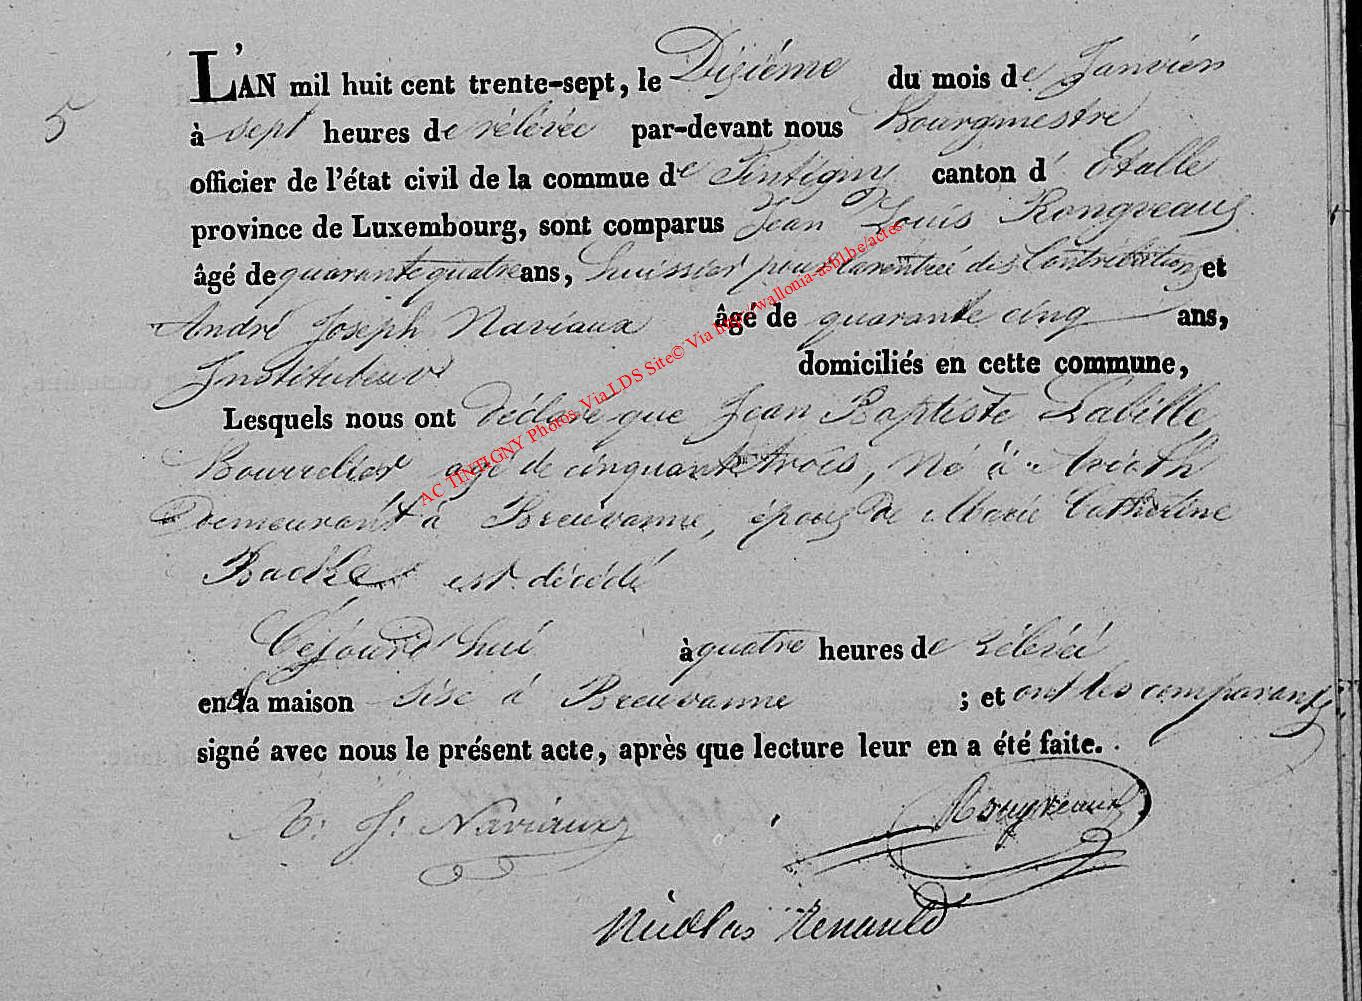 5
L'AN mil huit cent trente-sept, le Dixiéme du mois de Janvier
à sept heures de rélevée par-devant nous Bourgmestre
officier de l'état civil de la commue de Tintigny canton d' Etalle
province de Luxembourg, sont comparus Jean Louis Rongveaux
âgé de quarante quatre ans, huissier pour la rentrée des Contributions et
André Joseph Naviaux âgé de quarante cinq ans,
Instituteur domiciliés en cette commune,
Lesquels nous ont déclaré que Jean Baptiste Labille,
Bourrelier agé de cinquante trois, Né à
Demeurant à Breuvanne, époux de Marie Catherine
est décédé
Cejourd'hui à quatre heures de rélevée
en sa maison sise à Breuvanne ; et ont les comparants
signé avec nous le présent acte, après que lecture leur en a été faite.
A: J: Naviaux Rongveaux
Nicolas Renauld
AC TINTIGNY Photos Via LDS Site© Via http://wallonia-asbl.be/actes